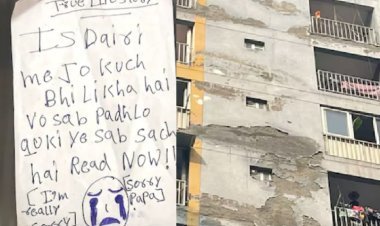 True Life Story
Is Dairi
me Jo kuch
Bhi Likha hai
Vo sab Padhlo
quki ye sab sach
hai Read NOW!!
[I'm really sorry]
[sorry Papa]